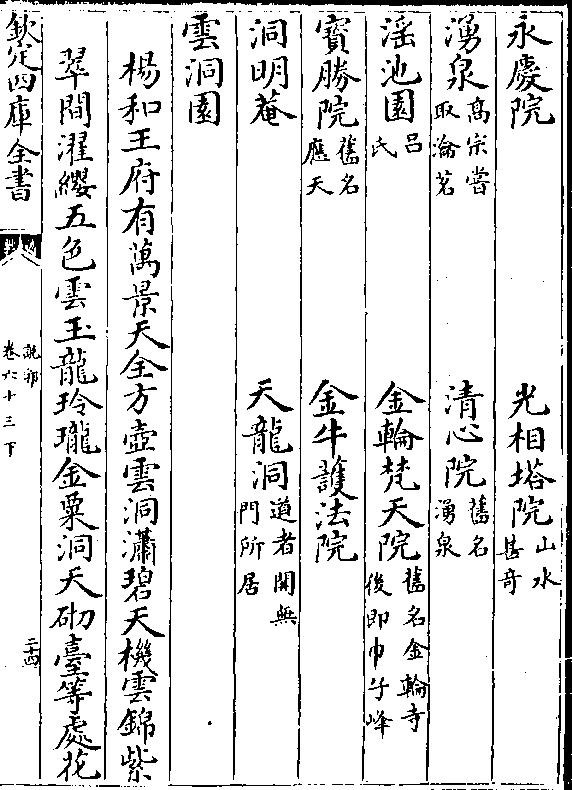 永慶院 光相塔院 山水甚奇
湧泉 高宗嘗取瀹茗 清心院 舊名湧泉
滛池園 呂氏 金輪梵天院 舊名金輪寺後即巾子峰
寳勝院 舊名應天 金牛護法院
洞明菴 天龍洞 道者開無門所居
雲洞園
楊和王府有萬景天全方壺雲洞瀟碧天機雲錦紫
翠間濯纓五色雲玉龍玲瓏金粟洞天砌臺等處花
欽定四庫全書
說郛
卷六十三下
二十四